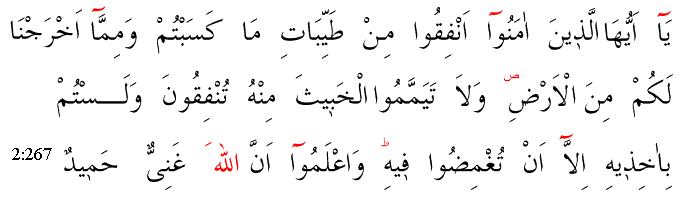 يَٓا اَيُّهَا الَّذ۪ينَ اٰمَنُٓوا اَنْفِقُوا مِنْ طَيِّبَاتِ مَا كَسَبْتُمْ وَمِمَّٓا اَخْرَجْنَا
لَكُمْ مِنَ الْاَرْضِۖ وَلَا تَيَمَّمُوا الْخَب۪يثَ مِنْهُ تُنْفِقُونَ وَلَسْتُمْ
بِاٰخِذ۪يهِ اِلَّٓا اَنْ تُغْمِضُوا ف۪يهِۜ وَاعْلَمُٓوا اَنَّ اللّٰهَ غَنِىٌّ حَم۪يدٌ 2:267